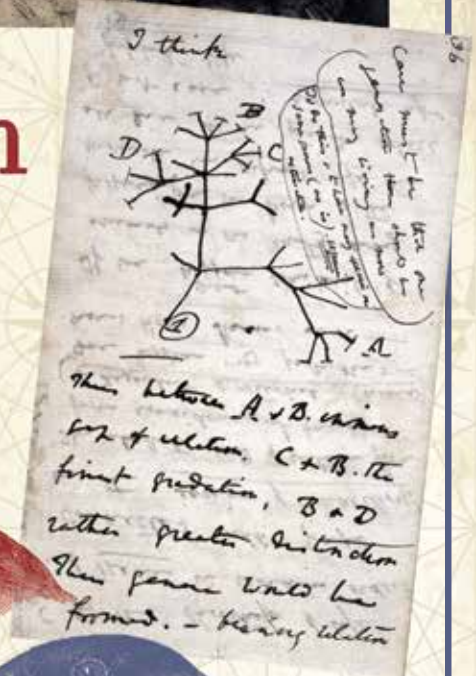 n
36
I think
Case must be that one
generation then should be
as many living as now
To do this & to have many species in
same genus (as is) requires
extinction.
B
D
C
1
A
Thus between A & B. immens
gap of relation. C & B. the
finest gradation, B & D
rather greater distinction
Thus genera would be
formed. — bearing relation